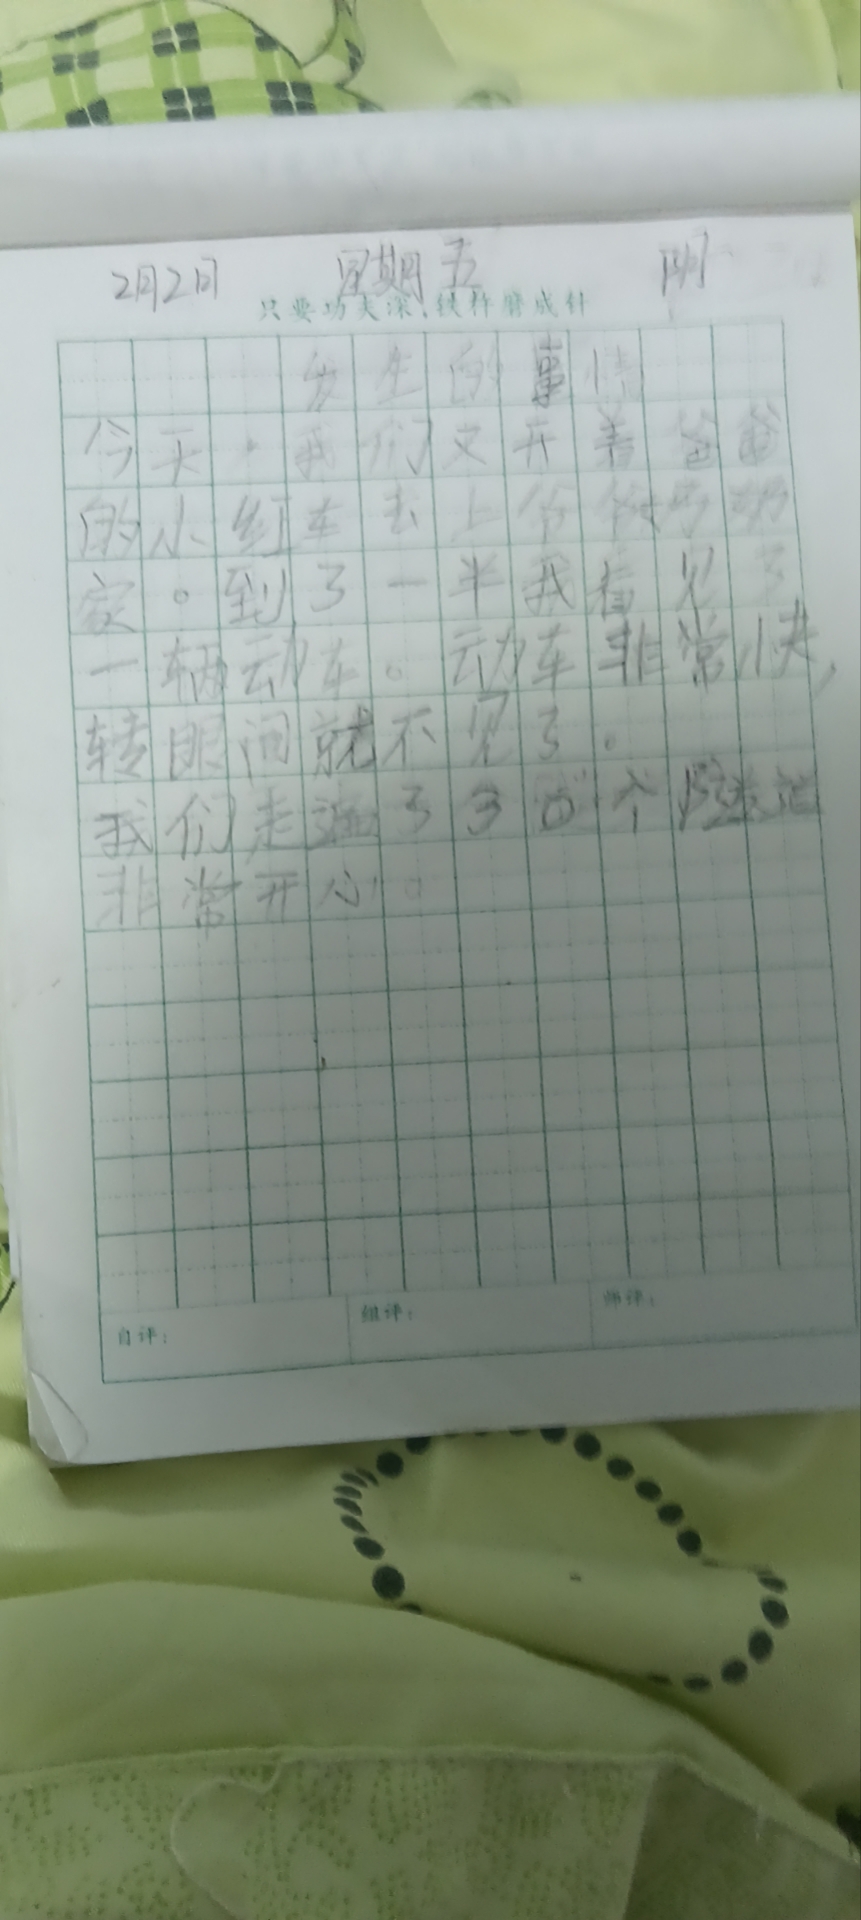 2月2日 星期五 阴
只要功夫深,铁杵磨成针
发生的事情
今天,我们又开着爸爸
的小红车去上爷爷奶
家。到了一半我看见了
一辆动车。动车非常快,
转眼间就不见了。
我们走过了3个隧道
非常开心。
自评: 组评: 师评: